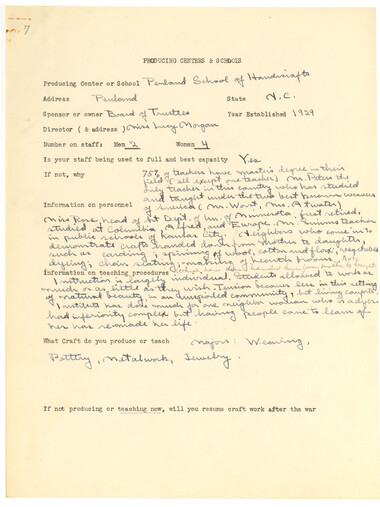 7
PRODUCING CENTERS & SCHOOLS
Producing Center or School Penland School of Handicrafts
Address Penland State N.C.
Sponsor or owner Board of Trustees Year Established 1929
Director ( & address ) Miss Lucy Morgan
Number on staff: Men 2 Women 4
Is your staff being used to full and best capacity Yes
If not, why 75% of teachers have master's degree in their
field (all except one teacher) M. Peters the
only teacher in this country who has studied
and taught under the two best known weavers
Information on personnel of Sweden
Miss Rose, head of Art Dept. of Un. of Minnesota, just retired,
studied at Columbia, Alfred, and Europe. M. Simms teacher
in public schools of Kansas City. Neighbors who come in to
demonstrate crafts handed down from mother to daughter,
such as carding, spinning of wool, cotton and flax, vegetable
dyeing, chair seating, making of hearth brooms.
Information on teaching procedures
Instruction is largely individual. Students allowed to work as
much or as little as they wish. Tension becomes less in this setting
of natural beauty in an unspoiled community,
had inferiority complex but having people come to learn of
her has remade her life.
What Craft do you produce or teach Majors: Weaving,
Pottery, Metalwork, Jewelry.
If not producing or teaching now, will you resume craft work after the war